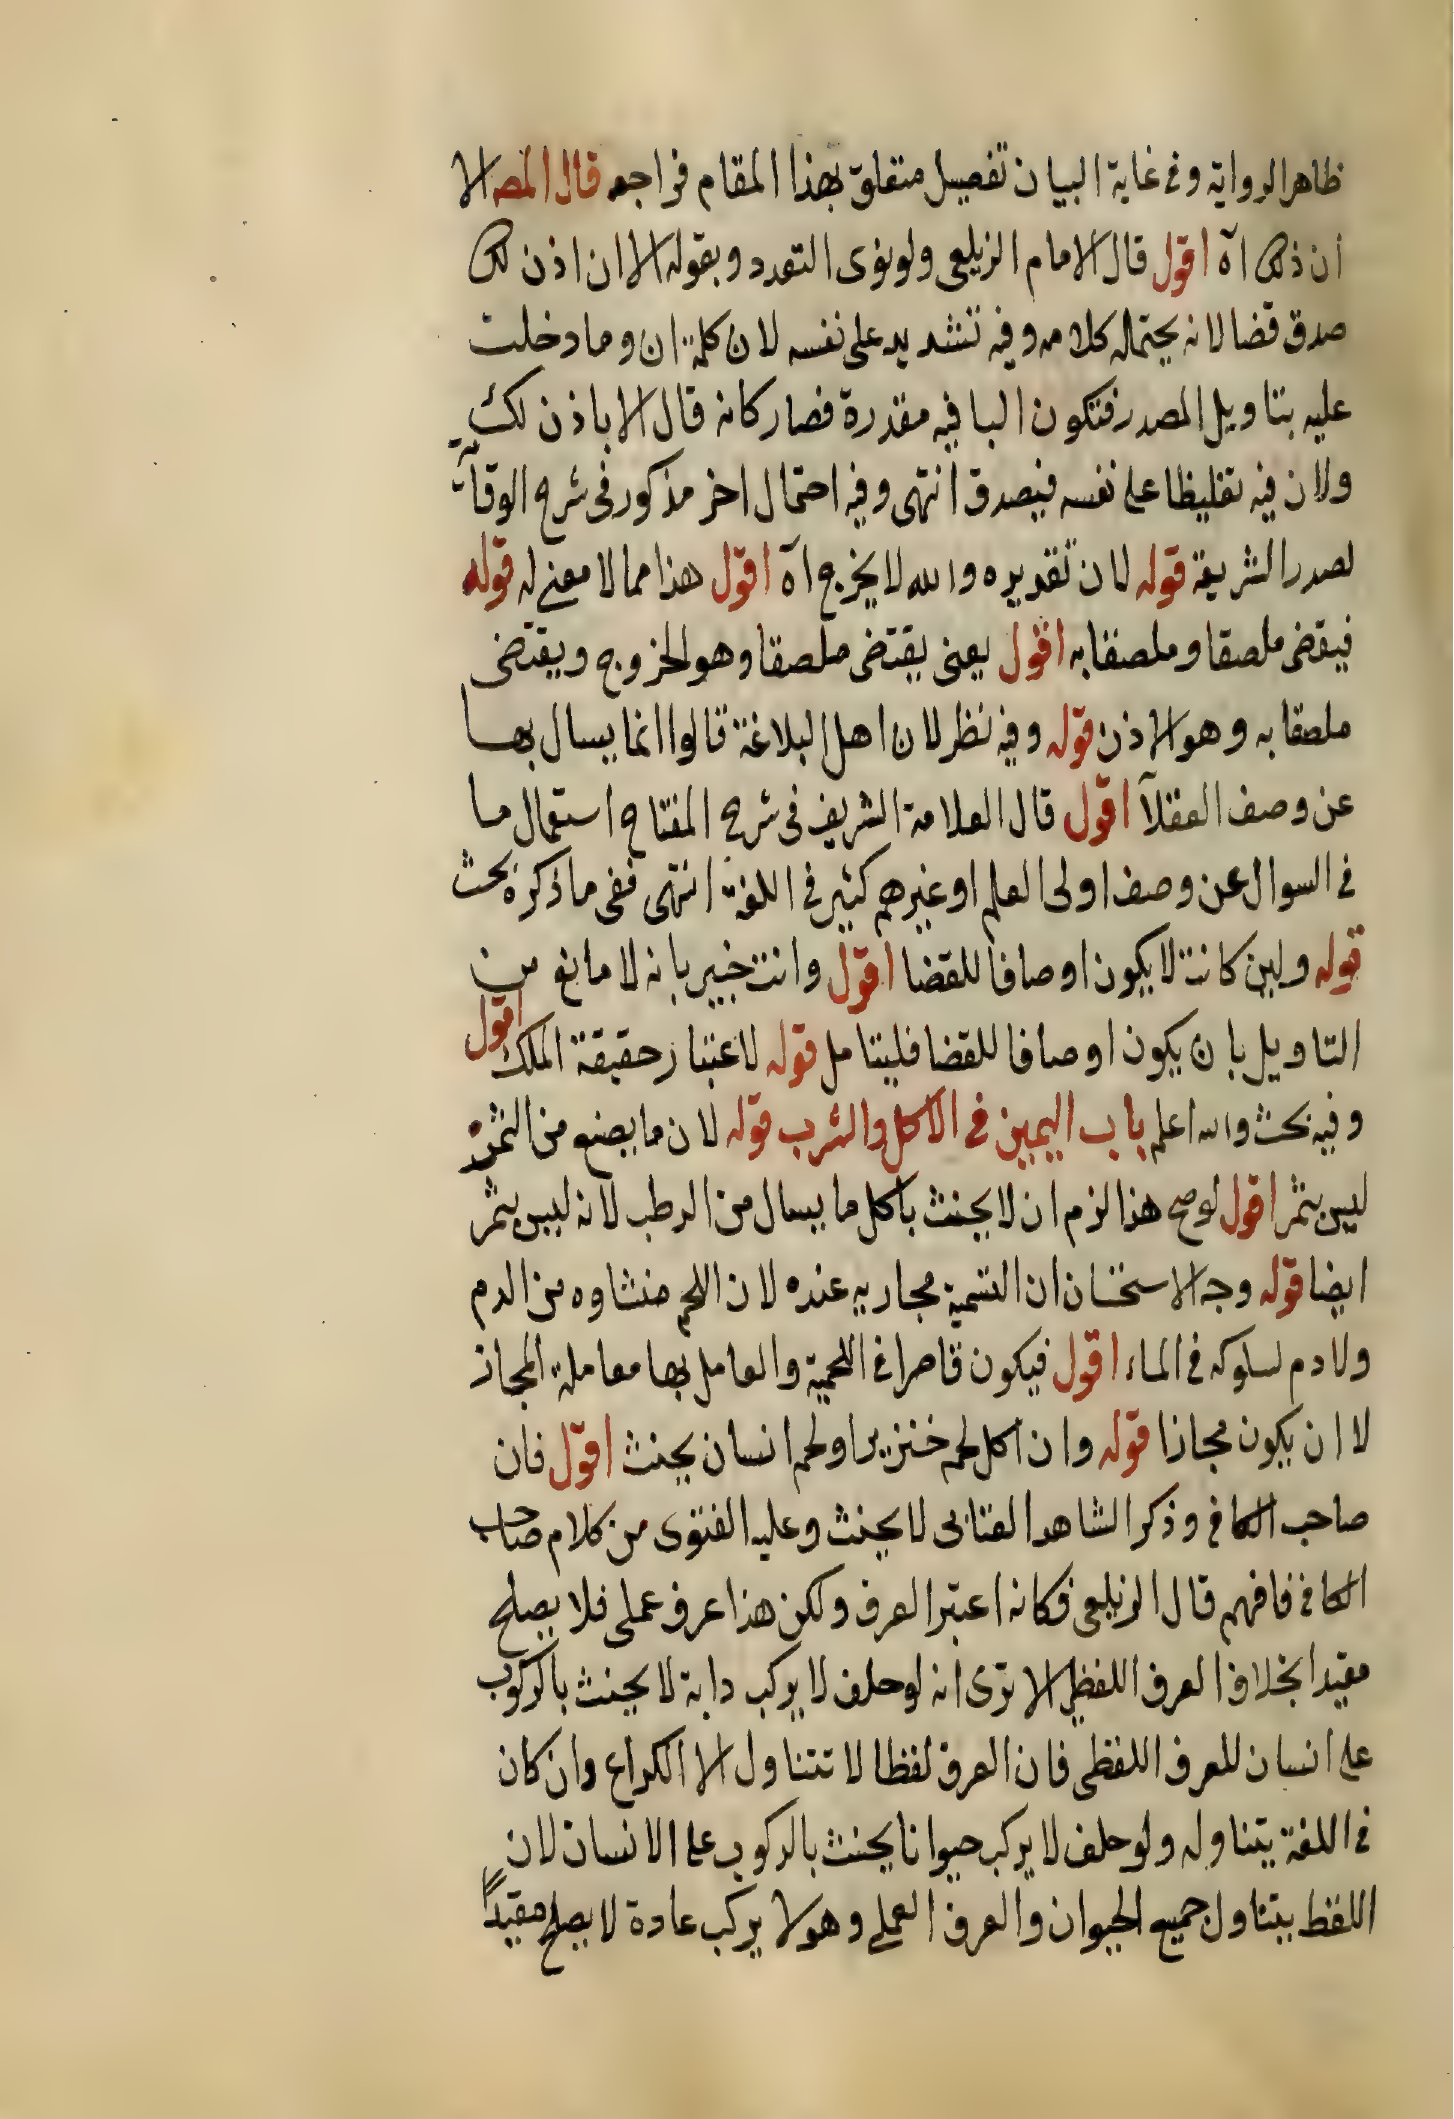 ظاهر الرواية وفي غاية البيان تفصيل متعلق بهذا المقام فراجعه قال المصـ الا
ان ذلك اه اقول قال الامام الزيلعي ولو نوى التعدد وبقوله الا ان اذن لك
صدق قضا لانه يحتمله كلامه وفيه تشديد على نفسه لان كلمة ان وما دخلت
عليه بتاويل المصدر فتكون البا فيه مقدرة فصار كانه قال الا باذن لك
ولان فيه تغليظا على نفسه فيصدق انتهى وفيه احتمال اخر مذكور في شرح الوقاية
لصدر الشريعة قوله لان تقديره والله لا يخرج اه اقول هذا مما لا معنى له قوله
فيقضى ملصقا وملصقا به اقول يعنى يقتضى ملصقا وهو الخروج ويقتضى
ملصقا به وهو الاذن قوله وفيه نظر لان اهل البلاغة قالوا انما يسال بهـــا
عن وصف العقلآ اقول قال العلامة الشريف في شرح المفتاح استعمال ما
في السوال عن وصف اولى العلم او غيرهم كثير في اللغة انتهى ففى ما ذكره بحث
قوله ولين كانت لا يكون اوصافا للقضا اقول وانت خبير بانه لا مانع من
التاويل بان يكون اوصافا للقضا فليتامل قوله لاعتبار حقيقة الملك اقول
وفيه بحث والله اعلم باب اليمين في الاكل والشرب قوله لان ما يصنع من التمر
ليس بتمر اقول لو صح هذا لزم ان لا يحنث باكل ما يسال من الرطب لانه ليس بتمر
ايضا قوله وجه الاستحسان ان التسمية مجازيه عنده لان اللحم منشاوه من الدم
ولا دم لسلوكه في الماء اقول فيكون قاصرا في اللحمية والعامل بها معاملة المجاز
لا ان يكون مجازا قوله وان اكل لحم خنزير او لحم انسان يحنث اقول فان
صاحب الكافي وذكر الشاهد العتابى لا يحنث وعليه الفتوى من كلام صاحب
الكافي فافهم قال الزيلعى فكانه اعتبر العرف ولكن هذا عرف عملى فلا يصلح
مقيدا بخلاف العرف اللفظى الا ترى انه لو حلف لا يركب دابة لا يحنث بالركوب
على انسان للعرف اللفظى فان العرف لفظا لا تتناول الا الكراع وان كان
في اللغة يتناوله ولو حلف لا يركب حيوانا يحنث بالركوب على الانسان لان
اللفظ يتناول جميع الحيوان والعرف العملى وهو لا يركب عادة لا يصلح مقيداً